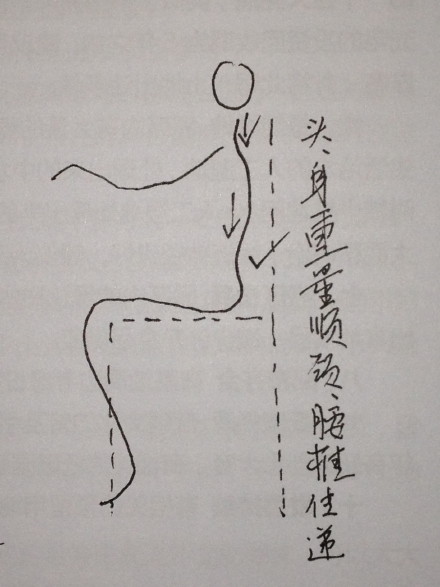 头、身重量顺颈、腰椎传递